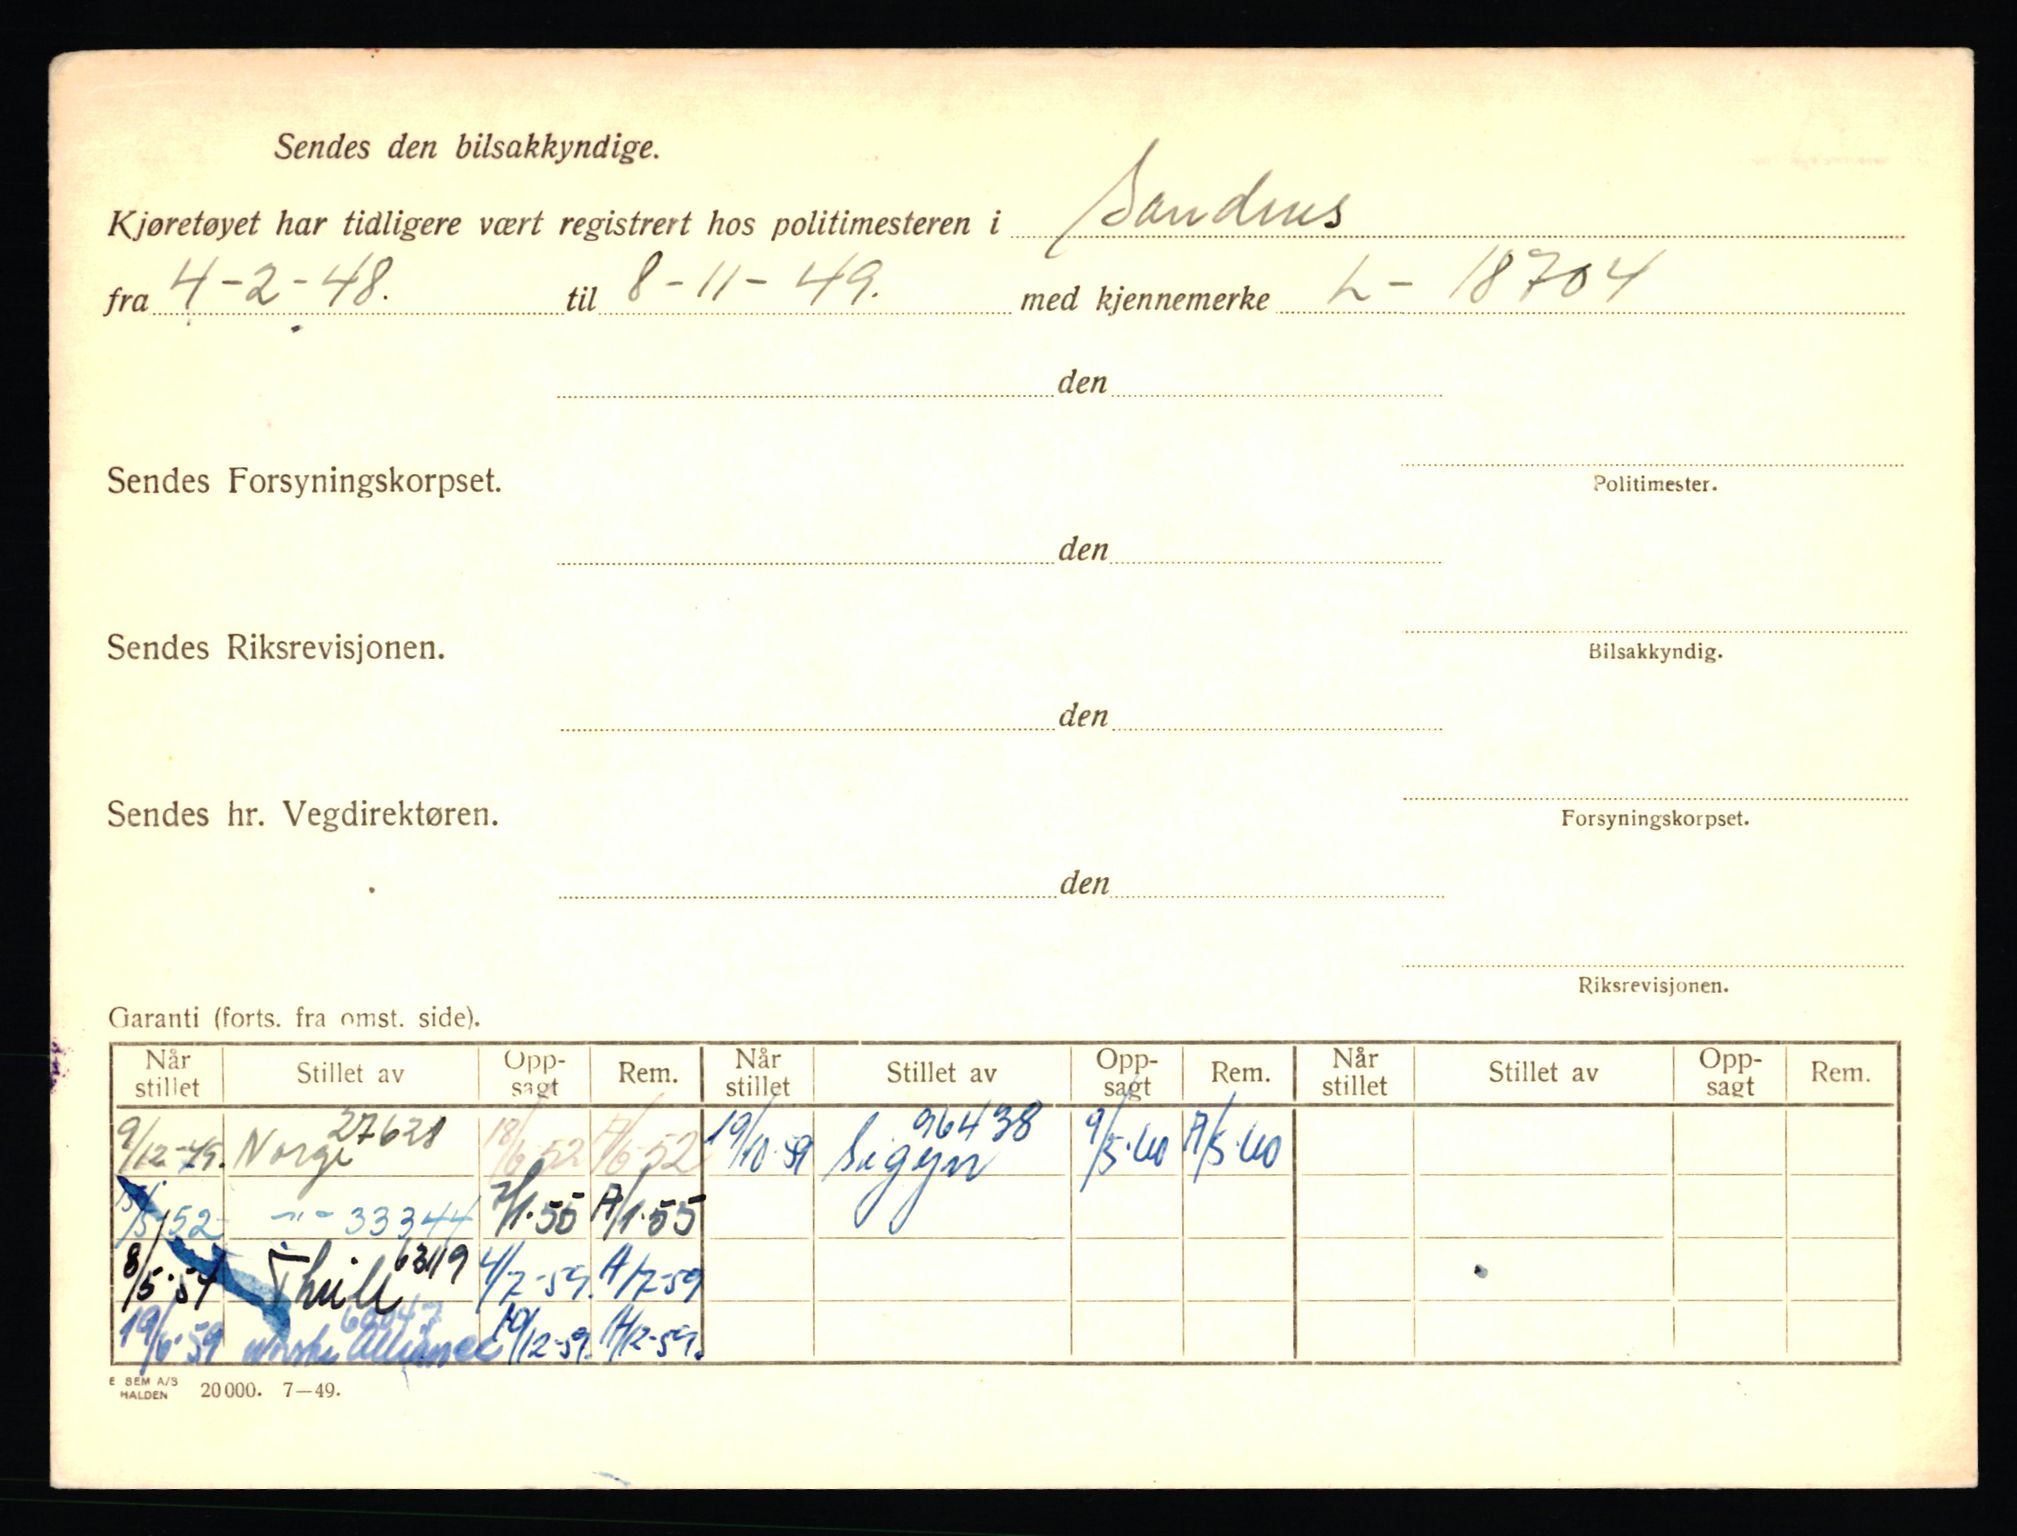 Sendes den bilsakkyndige.
Kjøretøyet har tidligere vært registrert hos politimesteren i Sandnes
fra 4-2-48. til 8-11-49. med kjennemerke L- 18704
den
Sendes Forsyningskorpset.
Politimester.
den
Sendes Riksrevisjonen.
Bilsakkyndig.
den
Sendes hr. Vegdirektøren.
Forsyningskorpset.
den
Riksrevisjonen.
Garanti (forts. fra omst. side).
Når stillet Stillet av Opp-sagt Rem. Når stillet Stillet av Opp-sagt Rem. Når stillet Stillet av Opp-sagt Rem.
9/12-49. Norge 27628 18/6-52 A/6-52 19/10-59 Sigyn 96438 9/5-60 A/5-60
/5-52 -"- 33344 7/1-55 A/1-55
8/5-54 Thule 63119 4/7-59. A/7-59
19/6-59 Norske Alliance 10/12-59. A/12-59.
E SEM A/S HALDEN 20000. 7—49.